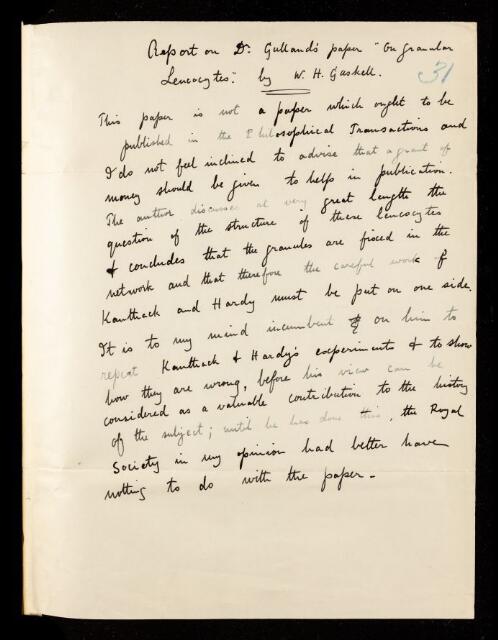 Report on Dr. Gulland's paper "On Granular
Leucocytes". by W. H. Gaskell.
31
This paper is not a paper which ought to be
published in the Philosophical Transactions and
I do not feel inclined to advise that a grant of
money should be given to help in publication.
The author discusses at very great length the
question of the structure of these leucocytes
& concludes that the granules are fixed in the
network and that therefore the careful work of
Kanthack and Hardy must be put on one side.
It is to my mind incumbent on him to
repeat Kanthack & Hardy's experiments & to show
how they are wrong, before his view can be
considered as a valuable contribution to the history
of the subject; until he has done this, the Royal
Society in my opinion had better have
nothing to do with the paper.